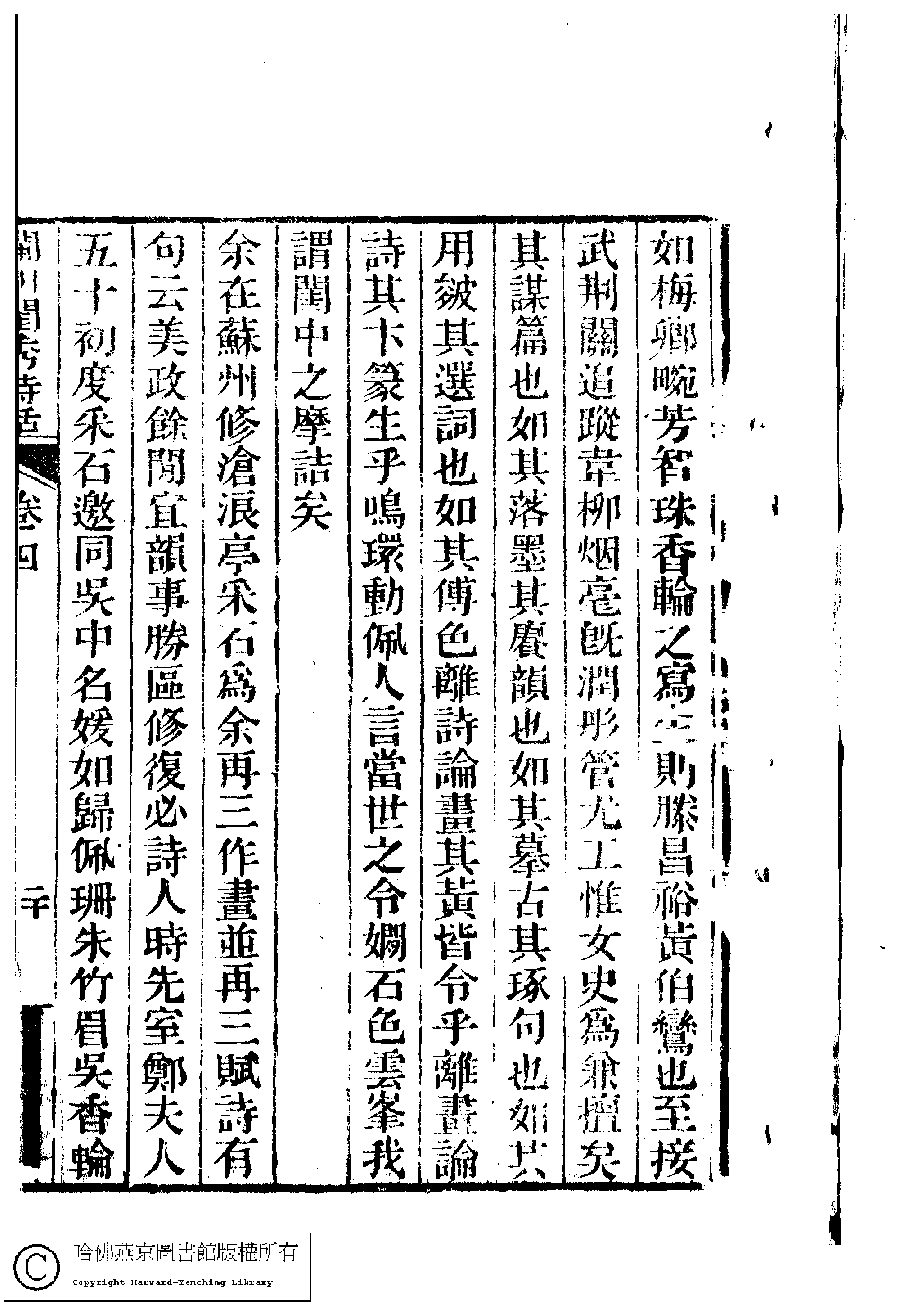 如梅卿畹芳智珠香輪之寫生則滕昌裕黃伯鸞也至接
武荆關追蹤韋柳烟毫旣潤彤管尤工惟女史爲兼擅矣
其謀篇也如其落墨其賡韻也如其摹古其琢句也如其
用皴其選詞也如其傅色離詩論畫其黃皆令乎離畫論
詩其卞篆生乎鳴環動佩人言當世之令嫺石色雲峯我
謂閨中之摩詰矣
余在蘇州修滄浪亭采石爲余再三作畫並再三賦詩有
句云美政餘閒宜韻事勝區修復必詩人時先室鄭夫人
五十初度采石邀同吳中名媛如歸佩珊朱竹眉吳香輪
閩川閨秀詩話
卷四
二十
哈佛燕京圖書館版權所有
© Copyright Harvard-Yenching Library